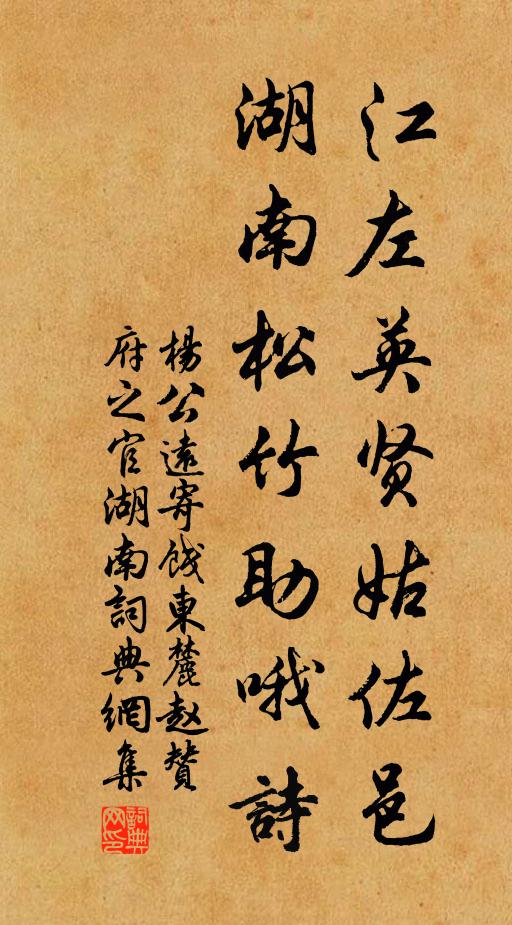 江左英贤姑佐邑
湖南松竹助哦詩
楊公遠寄餞東麓赵贊
府之官湖南詞典網集
詞典网印